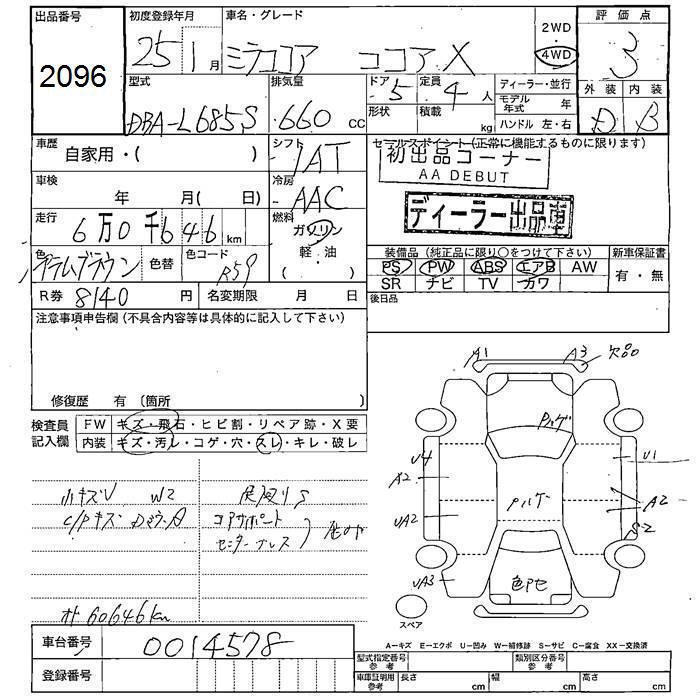 出品番号 初度登録年月 車名・グレード 2WD 評価点
2096 25 1月 ミラココア ココア X 4WD 3
型式 排気量 ドア 定員 ディーラー・並行 外装 内装
DBA-L685S 660cc 5 4人 モデル年式 年 D B
形状 積載 kg ハンドル 左・右
車歴 自家用・( ) シフト IAT セールスポイント(正常に機能するものに限ります)
初出品コーナー
AA DEBUT
車検 年 月( 日) 冷房 AAC
ディーラー出品車
走行 6万0千646km 燃料 ガソリン
軽・油
( )
色 ブラウン 色替 色コード R59
装備品(純正品に限り○をつけて下さい) 新車保証書
PS PW ABS エアB AW 有・無
SR ナビ TV カワ
R券 8140円 名変期限 月 日 後日品
注意事項申告欄(不具合内容等は具体的に記入して下さい)
修復歴 有(箇所 )
検査員記入欄 FW キズ・飛石・ヒビ割・リペア跡・X要
内装 キズ・汚レ・コゲ・穴・スレ・キレ・破レ
小キズU W2
コアサポート
オト60646km
A1 A3 欠品
U4 U1
A2 A2
UA2 S2
UA3
スペア
車台番号 0014578
登録番号
A-キズ E-エクボ U-凹み W-補修跡 S-サビ C-腐食 XX-交換済
型式指定番号 参考 類別区分番号 参考
車庫証明用 参考 長さ cm 幅 cm 高さ cm